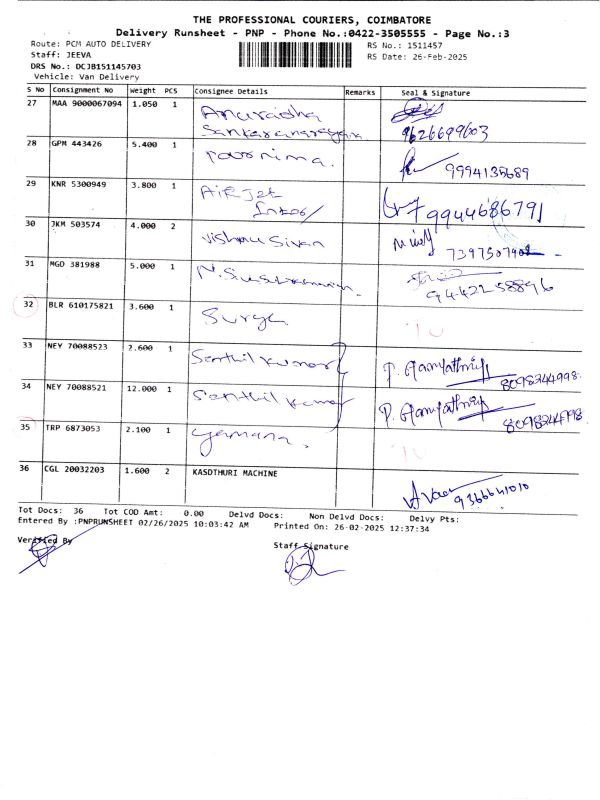 THE PROFESSIONAL COURIERS, COIMBATORE
Delivery Runsheet - PNP - Phone No.:0422-3505555 - Page No.:3
Route: PCM AUTO DELIVERY
RS No.: 1511457
Staff: JEEVA
RS Date: 26-Feb-2025
DRS No.: DCJB151145703
Vehicle: Van Delivery
S No Consignment No Weight PCS Consignee Details Remarks Seal & Signature
27 MAA 9000067094 1.050 1 Anuradha
Sankaranarayan 9626699603
28 GPM 443426 5.400 1 Poornima. 9994135689
29 KNR 5300949 3.800 1 AiRJet
Inter/ 9944686791
30 JKM 503574 4.000 2 Vishnu Sivan
31 MGD 381988 5.000 1 9442258896
32 BLR 610175821 3.600 1 Surya
33 NEY 70088523 2.600 1 Senthil Kumar 8098244998
34 NEY 70088521 12.000 1 Senthil Kumar 8098244998
35 TRP 6873053 2.100 1 Yamana.
36 CGL 20032203 1.600 2 KASDTHURI MACHINE 9366641010
Tot Docs: 36 Tot COD Amt: 0.00 Delvd Docs: Non Delvd Docs: Delvy Pts:
Entered By :PNPRUNSHEET 02/26/2025 10:03:42 AM Printed On: 26-02-2025 12:37:34
Verified By
Staff Signature